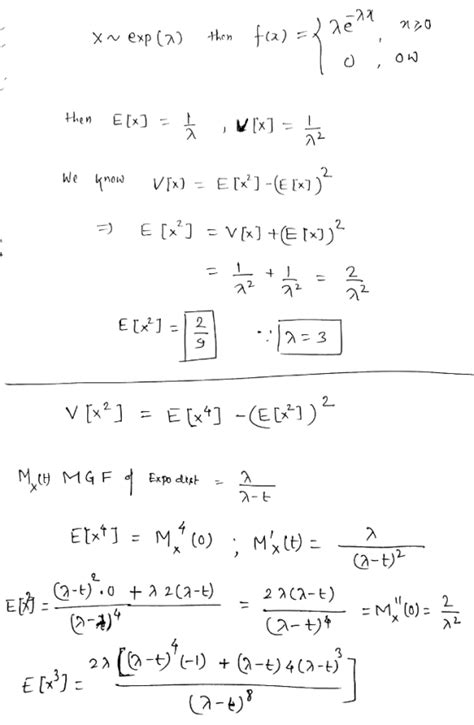 X ~ exp(λ) then f(x) = { λe^{-λx}, x≥0
0, ow
then E[x] = 1/λ, V[x] = 1/λ²
We know V[x) = E[x²]-(E[x])²
⇒ E[x²] = V[x]+(E[x])²
= 1/λ² + 1/λ² = 2/λ²
E[x²] = 2/9 ∵ λ = 3
V[x²] = E[x⁴] -(E[x²])²
M_x(t) MGF of Expo dist = λ/(λ-t)
E[x⁴] = M_x⁴(0) ; M'_x(t) = λ/(λ-t)²
E[x²] = ((λ-t)²·0 + λ2(λ-t))/(λ-t)⁴ = 2λ(λ-t)/(λ-t)⁴ = M_x''(0) = 2/λ²
E[x³] = 2λ[(λ-t)⁴(-1) + (λ-t)4(λ-t)³]/(λ-t)⁸